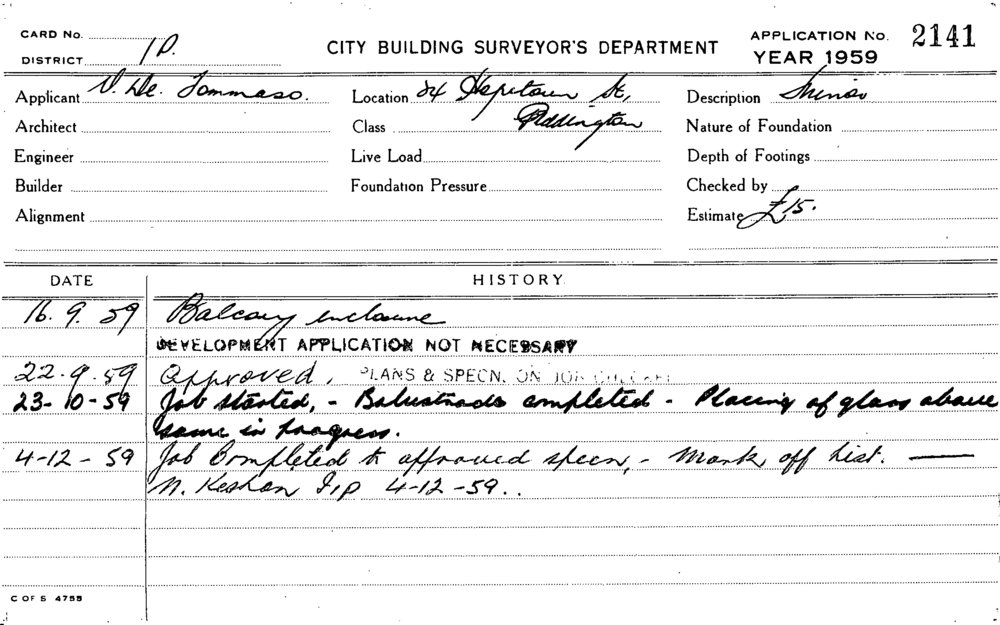 CARD No.
DISTRICT 1D.
CITY BUILDING SURVEYOR'S DEPARTMENT
APPLICATION No. 2141
YEAR 1959
Applicant V. De. Tommaso. Location 24 Hopetoun St, Description Minor
Architect Class Paddington Nature of Foundation
Engineer Live Load Depth of Footings
Builder Foundation Pressure Checked by
Alignment Estimate £15.
DATE HISTORY.
16. 9. 59 Balcony enclosure
DEVELOPMENT APPLICATION NOT NECESSARY
22.9.59 Approved, PLANS & SPECN. ON JOB
23-10-59 Job started, - Balustrade completed - Placing of glass above
same in progress.
4-12-59 Job Completed to approved specn, - Mark off List.
N. Keshan 4-12-59..
C OF S 4755